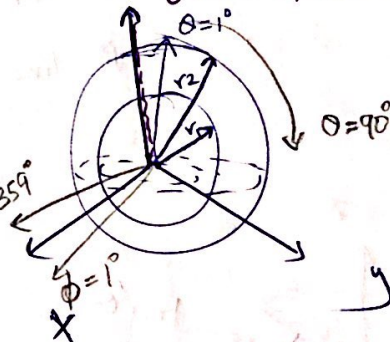 θ=1°
r2
r1
θ=90°
359°
ϕ=1°
X
y